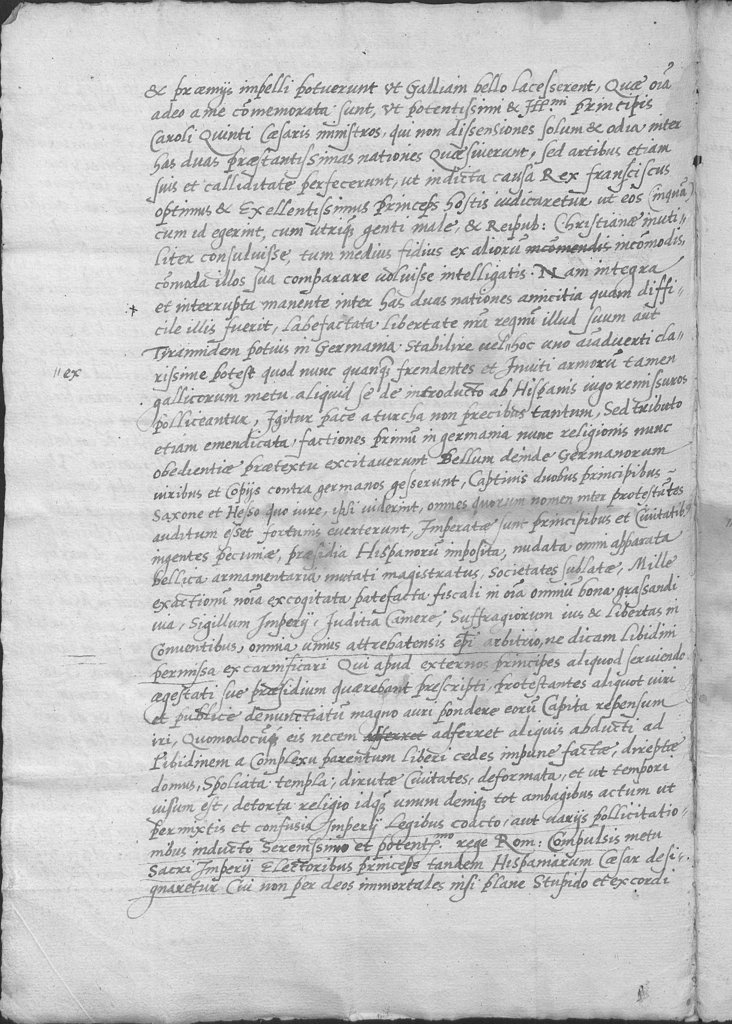 & præmijs impelli potuerunt vt Galliam bello lacesserent, Quæ oīa
adeo a me cōmemorata sunt, vt potentissimi & Ill.mi Principis
Caroli Quinti Cæsaris ministros, qui non dissensiones solum & odia inter
has duas præstantissimas nationes Quæsiverunt, sed artibus etiam
suis et calliditate perfecerunt, ut indicta causa Rex franciscus
optimus & Exellentissimus Princeps hostis iudicaretur, ut eos (inquā)
cum id egerint, cum utriq; genti male, & Reipub: Christianæ inuti-
liter consuluisse, tum medius fidius ex aliorū incōmendis incōmodis,
cōmoda illos sua comparare voluisse intelligatis. Nam integra
et interrupta manente inter has duas nationes amicitia quam diffi-
cile illis fuerit, Labefactata libertate nrā regnū illud suum aut
Tyrannidem potius in Germania stabilire vel hoc uno aīadverti cla-
" ex
rissime potest quod nunc quanq; frendentes et Inviti armorū tamen
gallicorum metu aliquid se de introducto ab Hispanis iugo remissuros
polliceantur, Igitur pace a turcha non precibus tantum, Sed tributo
etiam emendicata factiones primū in germania nunc religionis nunc
obedientiæ prætextu excitaverunt Bellum deinde Germanorum
viribus et Copijs contra germanos gesserunt, Captivis duobus principibus
Saxone et Hesso quo iure, ipsi viderint, omnes quorum nomen inter protestātes
auditum esset fortunis everterunt, Imperatæ sunt principibus et Civitatibq
ingentes pecuniæ, præsidia Hispanorū imposita, nudata omni apparata
bellica armamentaria mutati magistratus, Societates sublatæ, Mille
exactionū noīa excogitata patefacta fiscali in oīa omniū bona grassandi
via, Sigillum Imperij, Juditia Camere, Suffragiorum ius & libertas in
Conventibus, omnia unius attrebatensis epī arbitrio, ne dicam libidini
permissa excarnificari Qui apud externos principes aliquod serviendo
ægestati suæ præsidium quærebant prescripti, protestantes aliquot viri
et publice denunctiatū magno auri pondere eorū Capita repensum
iri, Quomodocūq; eis necem adferret adferret aliquis abducti ad
Libidinem a Complexu parentum liberi cedes impune factæ, direptæ
domus, Spoliata templa, dirutæ Civitates, deformata, et ut tempori
visum est, detorta religio idq; unum demq; tot ambagibus actum ut
permixtis et confusis Imperij Legibus coacto, aut varijs pollicitatio-
nibus inducto Serenissimo et potent.mo rege Rom: Compulsis metu
Sacri Imperij Electoribus princeps tandem Hispaniarum Cæsar desi-
gnaretur Cui non per deos immortales nisi plane Stupido et excordi